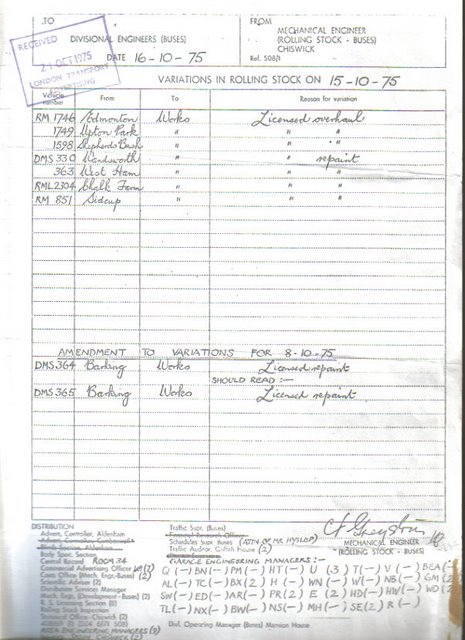 TO
DIVISIONAL ENGINEERS (BUSES)
DATE 16-10-75
FROM
MECHANICAL ENGINEER
(ROLLING STOCK - BUSES)
CHISWICK
Ref. 508/1
RECEIVED
21 OCT 1975
LONDON TRANSPORT
ADVERTISING
VARIATIONS IN ROLLING STOCK ON 15-10-75
Vehicle number From To Reason for variation
RM 1746 Edmonton Works Licensed overhaul
1749 Upton Park " " "
1598 Shepherds Bush " " "
DMS 330 Wandsworth " " repaint
363 West Ham " " "
RML 2304 Chalk Farm " " "
RM 851 Sidcup " " "
AMENDMENT TO VARIATIONS FOR 8-10-75
DMS 364 Barking Works Licensed repaint
SHOULD READ :-
DMS 365 Barking Works Licensed repaint
DISTRIBUTION
Advert. Controller, Aldenham
Work Section, Aldenham
Body Spec. Section
Central Record ROOM 34
Commercial Advertising Officer (2)
Costs Office (Mech. Engr.-Buses) (2)
Scientific Adviser (2)
Distribution Services Manager
Mech. Engr. (Development - Buses) (2)
R. S. Licensing Section (8)
Rolling Stock
Technical Office - Chiswick (2)
AREA ENGINEERING MANAGERS (2)
Traffic Supr. (Buses)
Financial Research Officer
Schedules Supr. Buses (ATTN OF MR HYSLOP)
Traffic Auditor, Griffith House (2)
MECHANICAL ENGINEER
(ROLLING STOCK - BUSES)
GARAGE ENGINEERING MANAGERS :-
Q (-) BN (-) PM (-) HT (-) U (3) T (-) V (-) BEA (-)
AL (-) TC (-) BX (2) H (-) WN (-) W (-) NB (-) GM (2)
SW (-) ED (-) AR (-) PR (2) E (2) HD (-) HW (-) WD (2)
TL (-) NX (-) BW (-) NS (-) MH (-) SE (2) R (-)
Divl. Operating Manager (Buses) Mansion House